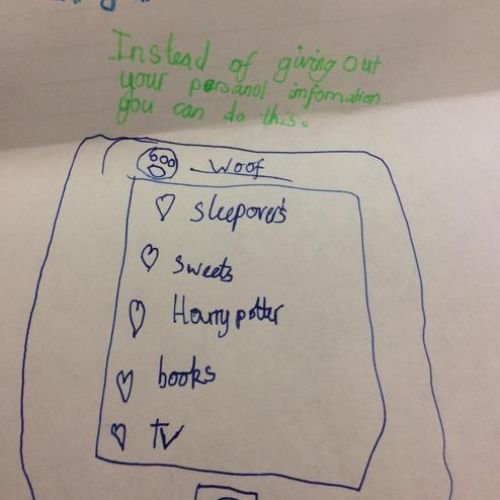 Instead of giving out
your personal information
you can do this.
Woof
sleepovers
sweets
Harry potter
books
TV